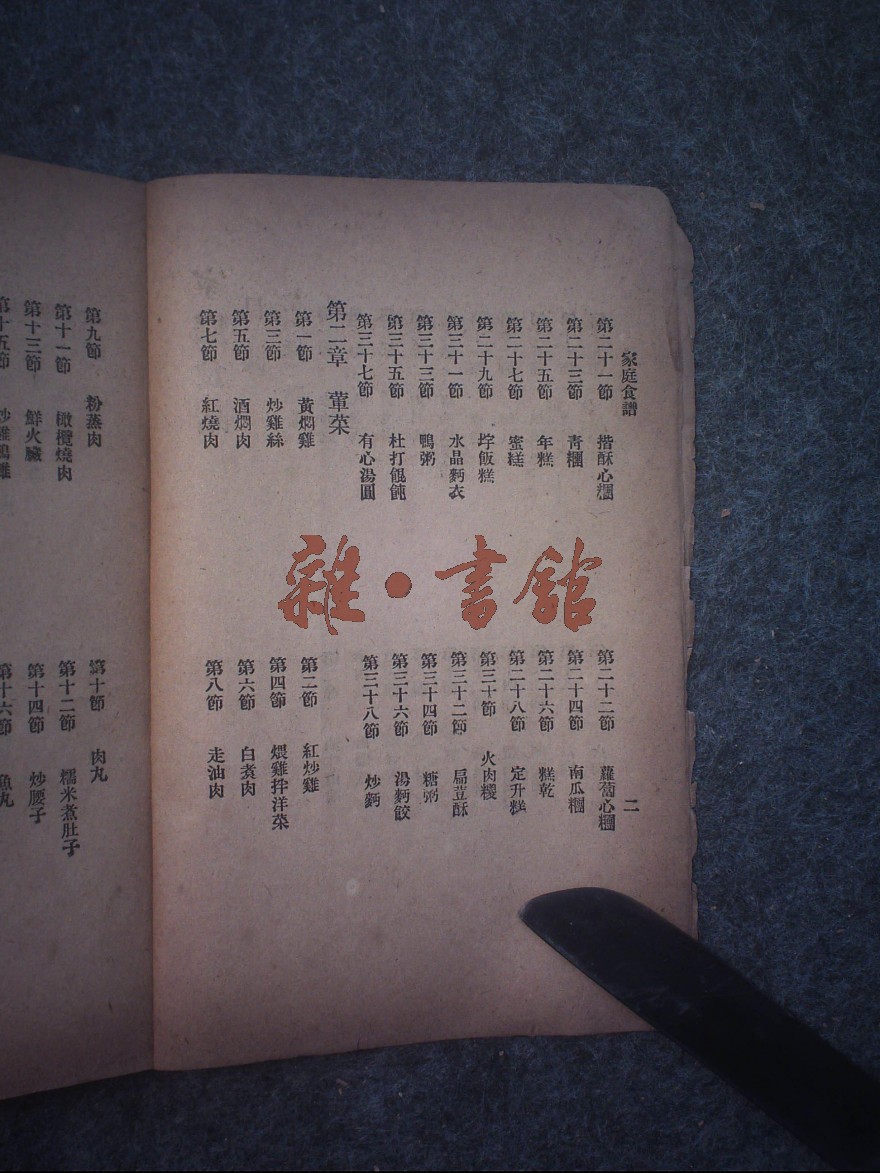 家庭食譜
二
第二十一節 揩酥心糰
第二十二節 蘿蔔心糰
第二十三節 青糰
第二十四節 南瓜糰
第二十五節 年糕
第二十六節 糕乾
第二十七節 蜜糕
第二十八節 定升糕
第二十九節 垶飯糕
第三十節 火肉糉
第三十一節 水晶麪衣
第三十二節 扁荳酥
第三十三節 鴨粥
第三十四節 糖粥
第三十五節 杜打餛飩
第三十六節 湯麪餃
第三十七節 有心湯圓
第三十八節 炒麪
第二章 葷菜
第一節 黃燜雞
第二節 紅炒雞
第三節 炒雞絲
第四節 煨雞拌洋菜
第五節 酒燜肉
第六節 白煮肉
第七節 紅燒肉
第八節 走油肉
第九節 粉蒸肉
第十節 肉丸
第十一節 橄欖燒肉
第十二節 糯米煮肚子
第十三節 鮮火臟
第十四節 炒腰子
第十五節
第十六節 魚丸
雜·書館